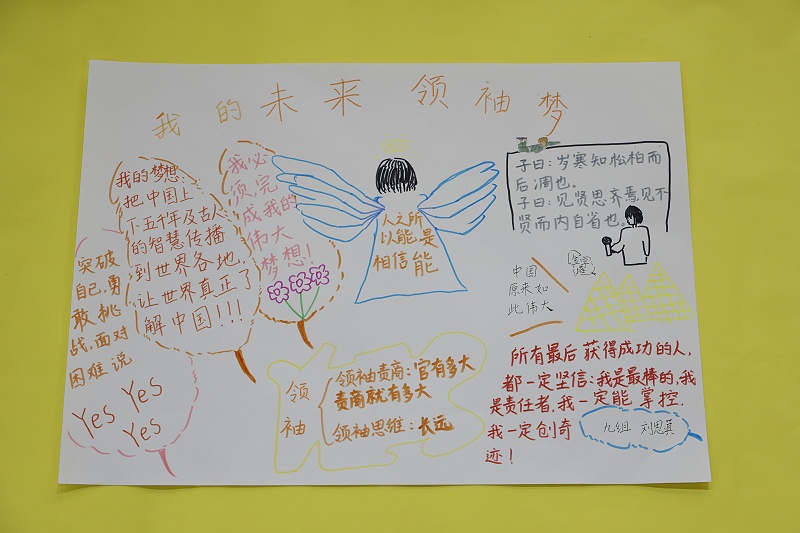 我的未来领袖梦
我的梦想:
把中国上
下五千年及古人
的智慧传播
到世界各地,
让世界真正了
解中国!!!
我必
须完
成我的
伟大
梦想!
突破
自己,勇
敢挑
战,面对
困难说
Yes Yes
Yes
人之所
以能,是
相信能
子曰:岁寒知松柏而
后凋也。
子曰:见贤思齐焉见不
贤而内自省也。
中国
原来如
此伟大
领袖
领袖责商:官有多大
责商就有多大
领袖思维:长远
所有最后获得成功的人,
都一定坚信:我是最棒的,我
是责任者,我一定能掌控,
我一定创奇
迹!
九组 刘恩